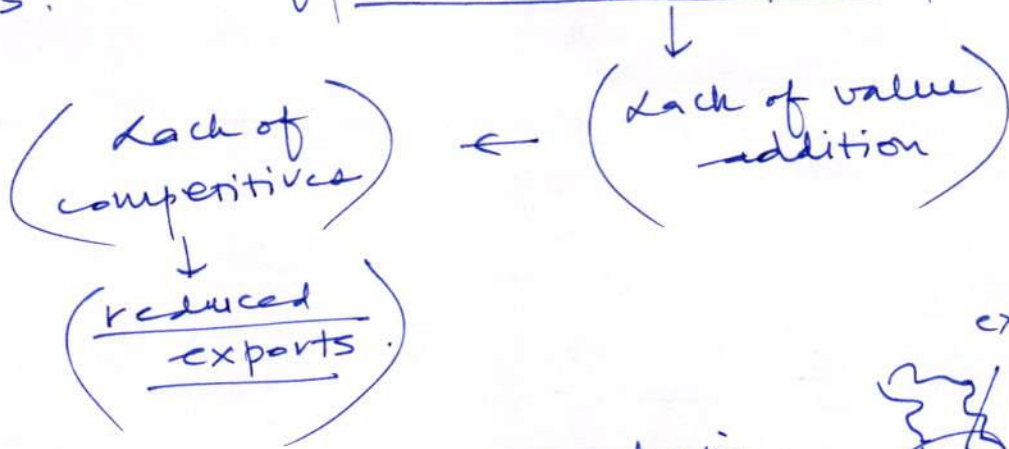 s.
Lack of value
addition
Lack of
competitives
reduced
exports.